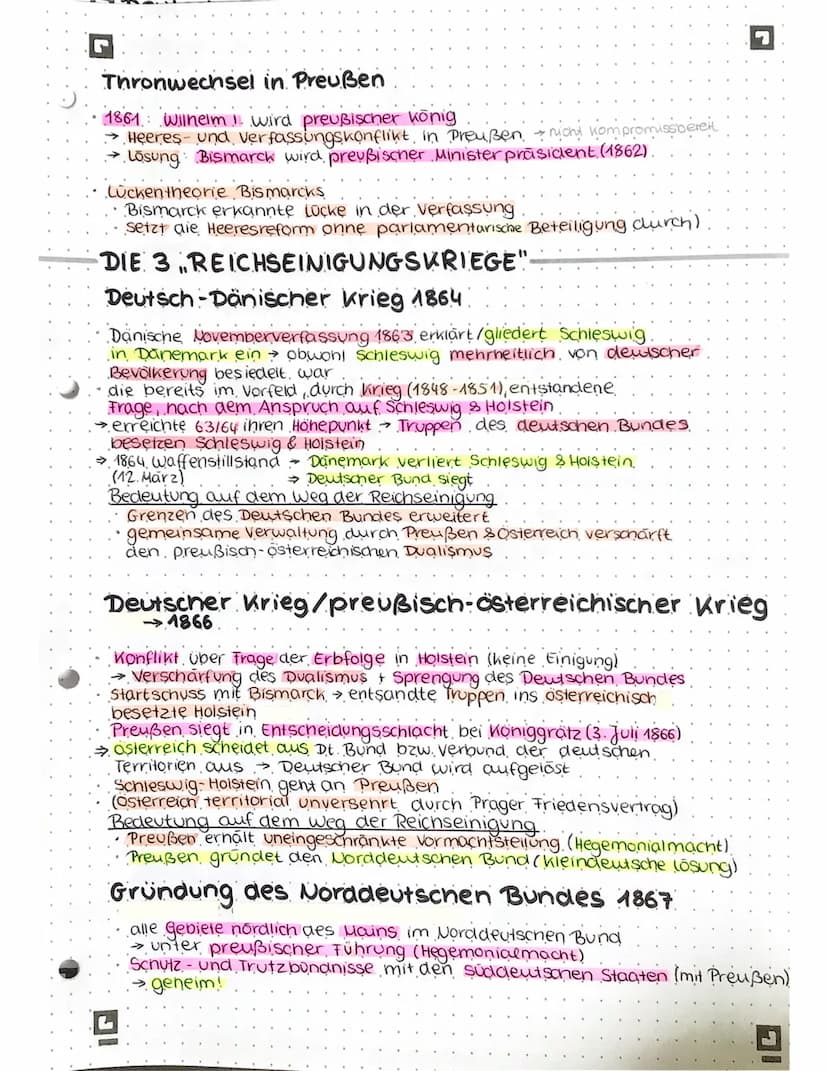 Thronwechsel in Preußen
· 1861: Wilhelm I. wird preußischer König
→ Heeres- und Verfassungskonflikt in Preußen → nicht kompromissbereit
→ Lösung: Bismarck wird preußischer Ministerpräsident (1862)
· Lückentheorie Bismarcks
· Bismarck erkannte Lücke in der Verfassung
· setzt die Heeresreform ohne parlamentarische Beteiligung durch)
DIE 3 „REICHSEINIGUNGSKRIEGE"
Deutsch-Dänischer Krieg 1864
· Dänische Novemberverfassung 1863 erklärt/gliedert Schleswig
in Dänemark ein → obwohl Schleswig mehrheitlich von deutscher
Bevölkerung besiedelt war
· die bereits im Vorfeld, durch Krieg (1848-1851), entstandene
Frage, nach dem Anspruch auf Schleswig & Holstein
→ erreichte 63/64 ihren Höhepunkt → Truppen des deutschen Bundes
besetzen Schleswig & Holstein
⇒ 1864 Waffenstillstand → Dänemark verliert Schleswig & Holstein
(12. März) ⇒ Deutscher Bund siegt
Bedeutung auf dem Weg der Reichseinigung
· Grenzen des Deutschen Bundes erweitert
· gemeinsame Verwaltung durch Preußen & Österreich verschärft
den preußisch-österreichischen Dualismus
Deutscher Krieg/preußisch-österreichischer Krieg
→ 1866
· Konflikt über Frage der Erbfolge in Holstein (keine Einigung)
→ Verschärfung des Dualismus + Sprengung des Deutschen Bundes
· Startschuss mit Bismarck → entsandte Truppen ins österreichisch
besetzte Holstein
· Preußen siegt in Entscheidungsschlacht bei Königgrätz (3. Juli 1866)
⇒ Österreich scheidet aus Dt. Bund bzw. Verbund der deutschen
Territorien aus → Deutscher Bund wird aufgelöst
· Schleswig-Holstein geht an Preußen
· (Österreich territorial unversehrt durch Prager Friedensvertrag)
Bedeutung auf dem Weg der Reichseinigung
· Preußen erhält uneingeschränkte Vormachtstellung (Hegemonialmacht)
· Preußen gründet den Norddeutschen Bund (kleindeutsche Lösung)
Gründung des Norddeutschen Bundes 1867
· alle Gebiete nördlich des Mains im Norddeutschen Bund
→ unter preußischer Führung (Hegemonialmacht)
· Schutz- und Trutzbündnisse mit den süddeutschen Staaten (mit Preußen)
→ geheim!